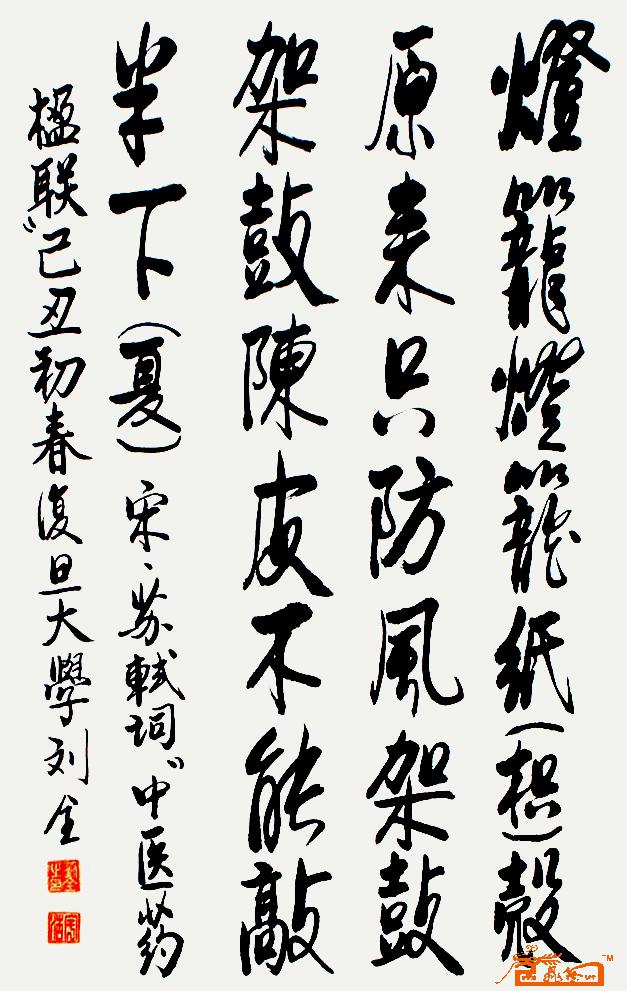 燈籠燈籠紙(枳)殼
原来只防風架鼓
架鼓陳皮不能敲
半下(夏)宋、苏軾词〝中医药
楹联〞己丑初春復旦大學刘全